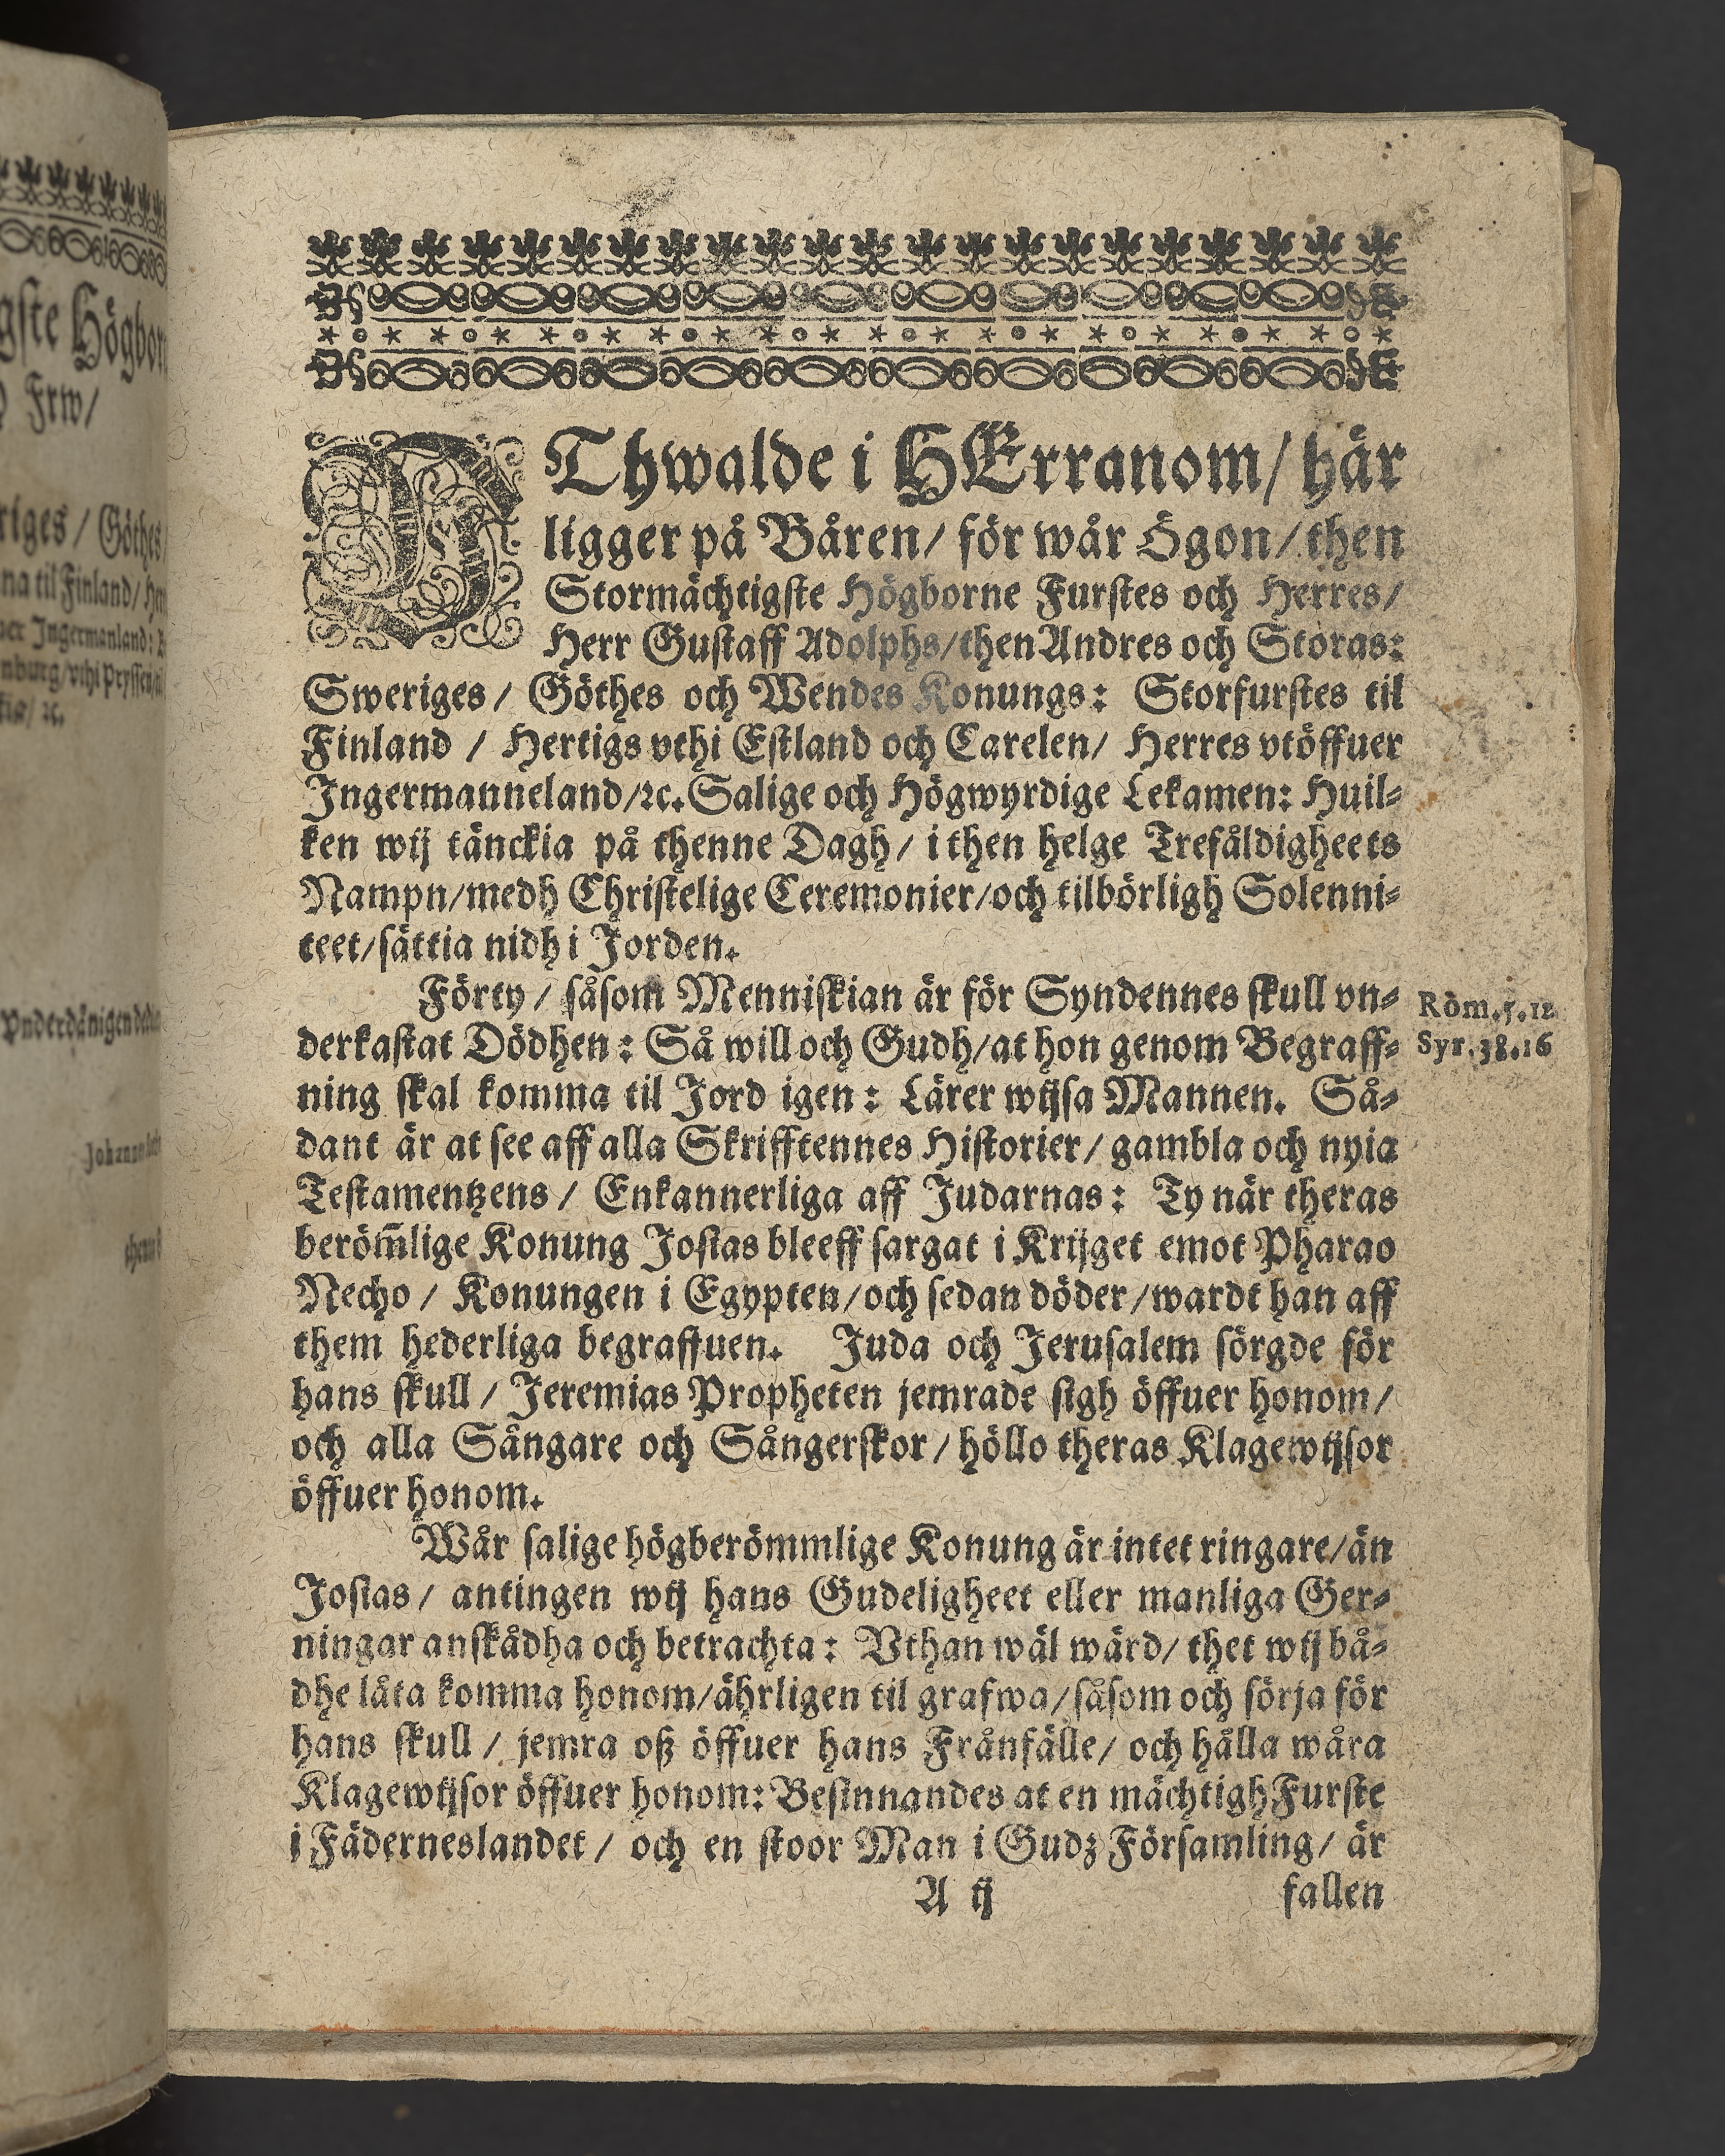 gste Högbor
Frw/
riges / Göthes
na til Finland/
Ingermanland:
nburg/vthi Pryssen
Vnderdånigen
UThwalde i HErranom/ här
ligger på Båren/ för wår Ögon/ then
Stormächtigſte Högborne Furſtes och Herres/
Herr Guſtaff Adolphs/then Andres och Storas:
Sweriges/ Göthes och Wendes Konungs: Storfurſtes til
Finland / Hertigs vthi Eſtland och Carelen/ Herres vtöffuer
Ingermanneland/ꝛc. Salige och Högwyrdige Lekamen: Huil⸗
ken wij tänckia på thenne Dagh/ i then helge Trefåldigheets
Nampn/medh Chriſtelige Ceremonier/och tilbörligh Solenni⸗
teet/ſättia nidh i Jorden.
Förty / ſåſom Menniſkian är för Syndennes ſkull vn⸗
Rom.5.12
derkaſtat Dödhen: Så will och Gudh/at hon genom Begraff⸗
Syr.38.16
ning ſkal komma til Jord igen: Lärer wijſa Mannen. Så⸗
dant är at ſee aff alla Skrifftennes Hiſtorier/ gambla och nyia
Teſtamentzens / Enkannerliga aff Judarnas: Ty när theras
beröm̃lige Konung Joſias bleeff ſargat i Krijget emot Pharao
Necho / Konungen i Egypten/och ſedan döder/wardt han aff
them hederliga begraffuen. Juda och Jeruſalem ſörgde för
hans ſkull / Jeremias Propheten jemrade ſigh öffuer honom/
och alla Sångare och Sångerſkor/ höllo theras Klagewijſor
öffuer honom.
Wår ſalige högberömmlige Konung är intet ringare/än
Joſias/ antingen wij hans Gudeligheet eller manliga Ger⸗
ningar anſkådha och betrachta: Vthan wäl wärd/ thet wij bå⸗
dhe låta komma honom/ährligen til grafwa/ſåſom och ſörja för
hans ſkull / jemra oß öffuer hans Frånfälle/ och hålla wåra
Klagewijſor öffuer honom: Beſinnandes at en mächtigh Furſte
i Fäderneslandet / och en ſtoor Man i Gudz Förſamling/ är
A ij fallen